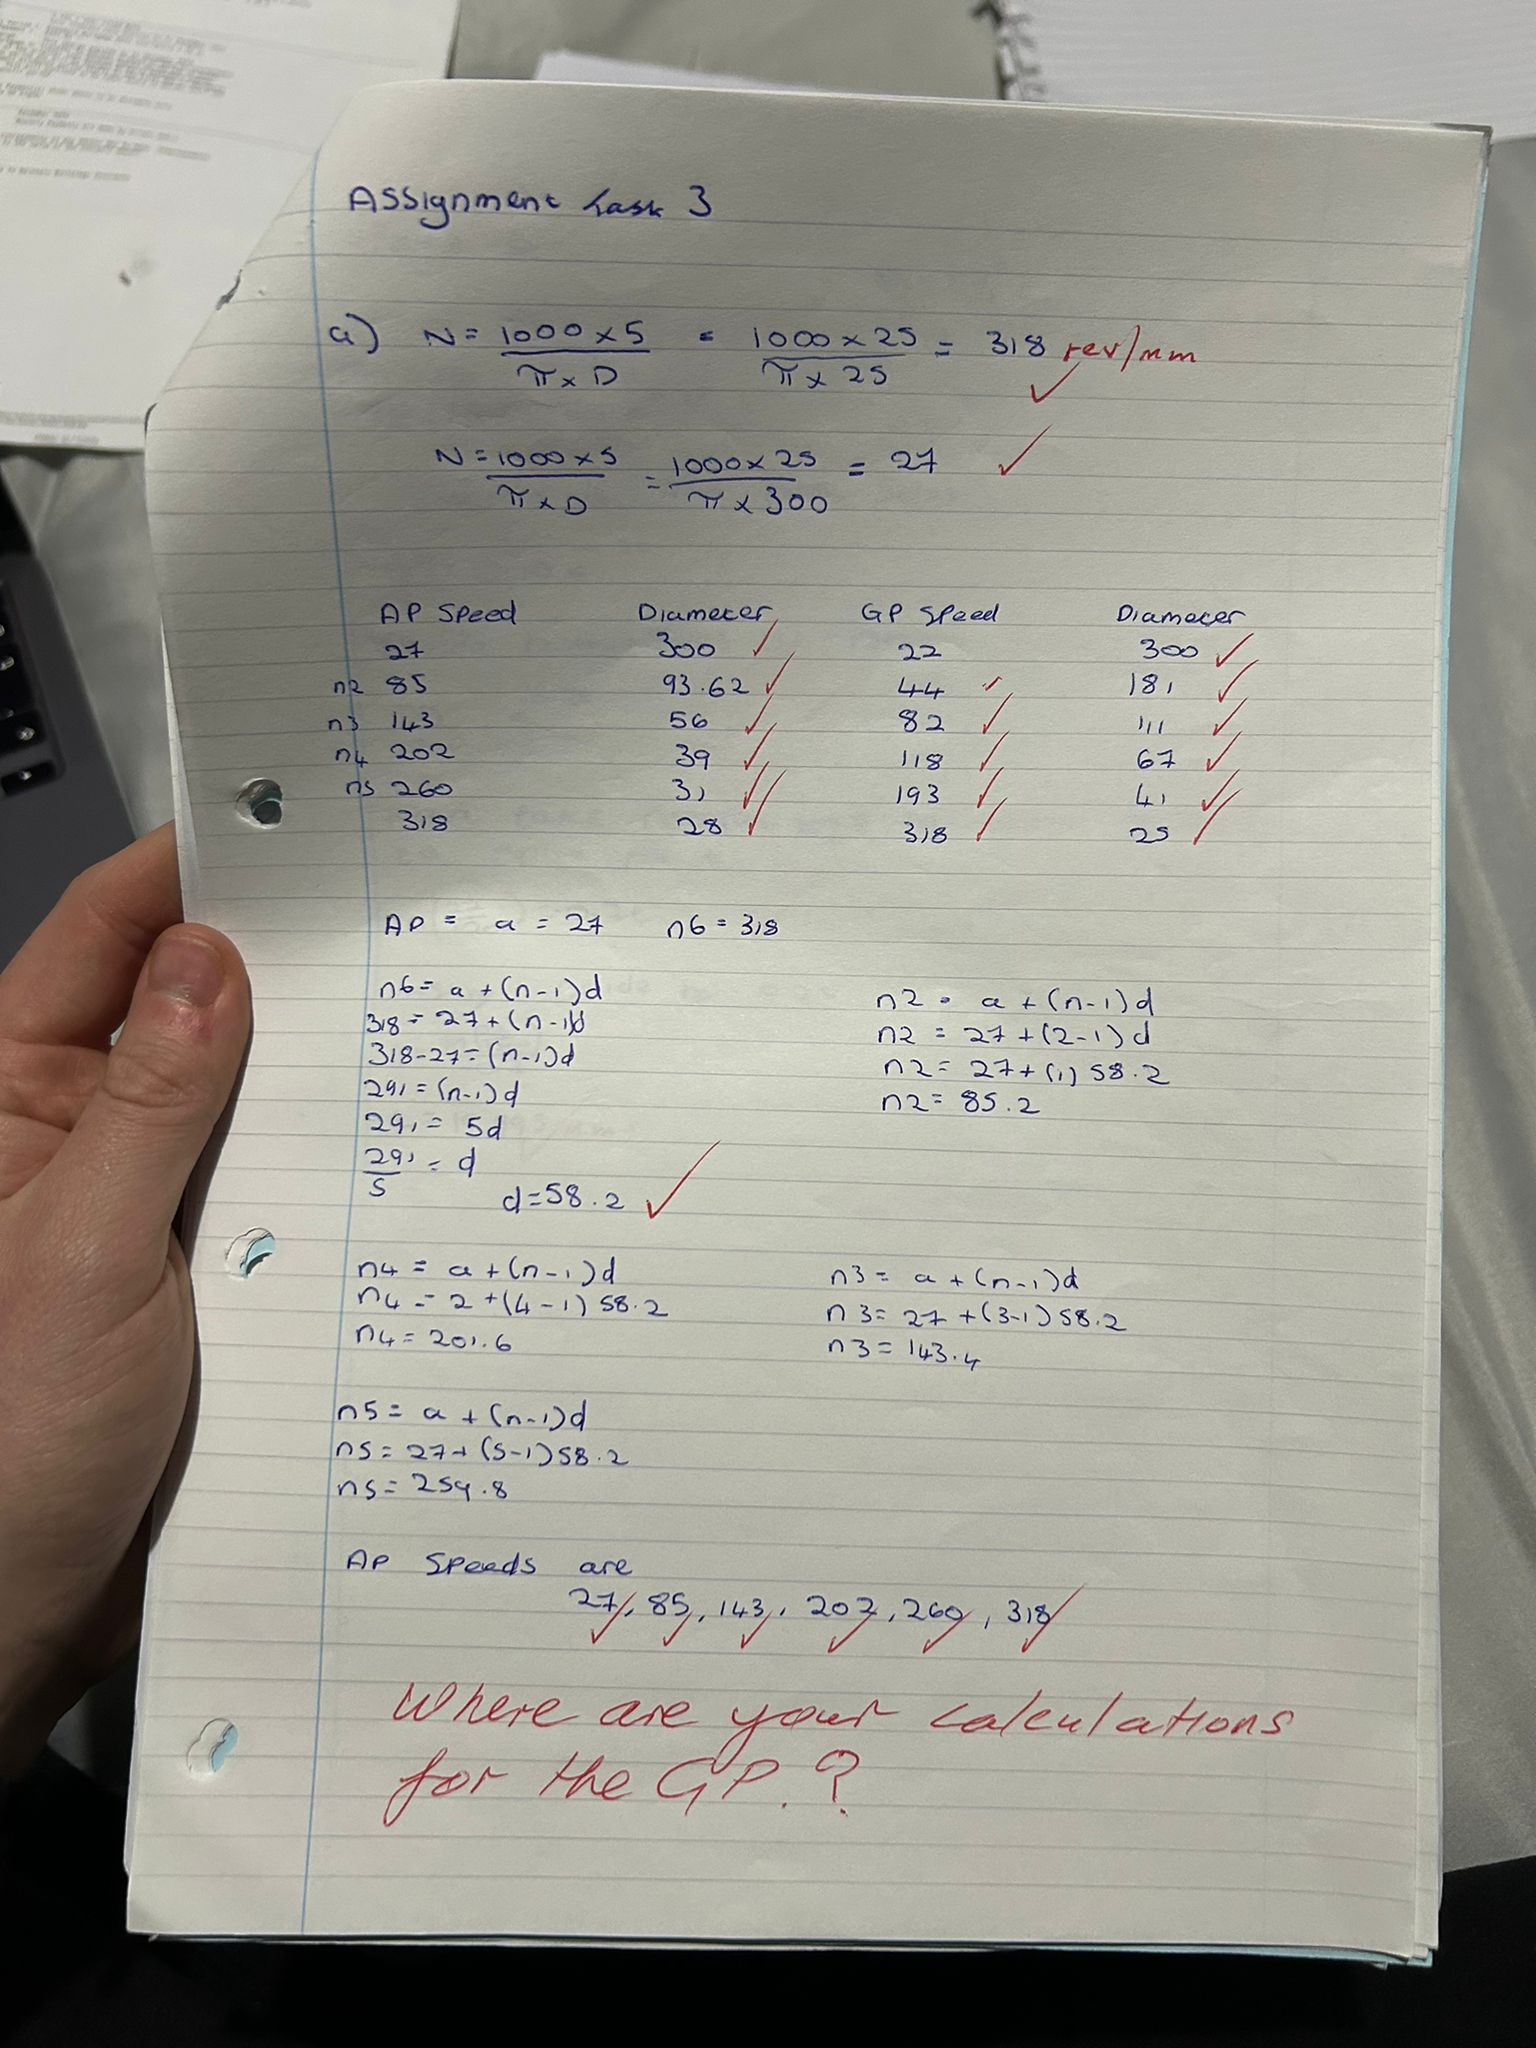 Assignment task 3
a) N = 1000 x S / π x D = 1000 x 25 / π x 25 = 318 rev/mm
N = 1000 x S / π x D = 1000 x 25 / π x 300 = 27
AP Speed Diameter GP Speed Diameter
27 300 22 300
n2 85 93.62 44 181
n3 143 56 82 111
n4 202 39 118 67
n5 260 31 193 41
318 28 318 25
AP = a = 27 n6 = 318
n6 = a + (n-1)d
318 = 27 + (n-1)d
318-27 = (n-1)d
291 = (n-1)d
291 = 5d
291 / 5 = d
d = 58.2
n2 = a + (n-1)d
n2 = 27 + (2-1)d
n2 = 27 + (1) 58.2
n2 = 85.2
n4 = a + (n-1)d
n4 = 2 + (4-1) 58.2
n4 = 201.6
n3 = a + (n-1)d
n3 = 27 + (3-1) 58.2
n3 = 143.4
n5 = a + (n-1)d
n5 = 27 + (5-1) 58.2
n5 = 259.8
AP Speeds are
27, 85, 143, 202, 260, 318
Where are your calculations
for the GP.?